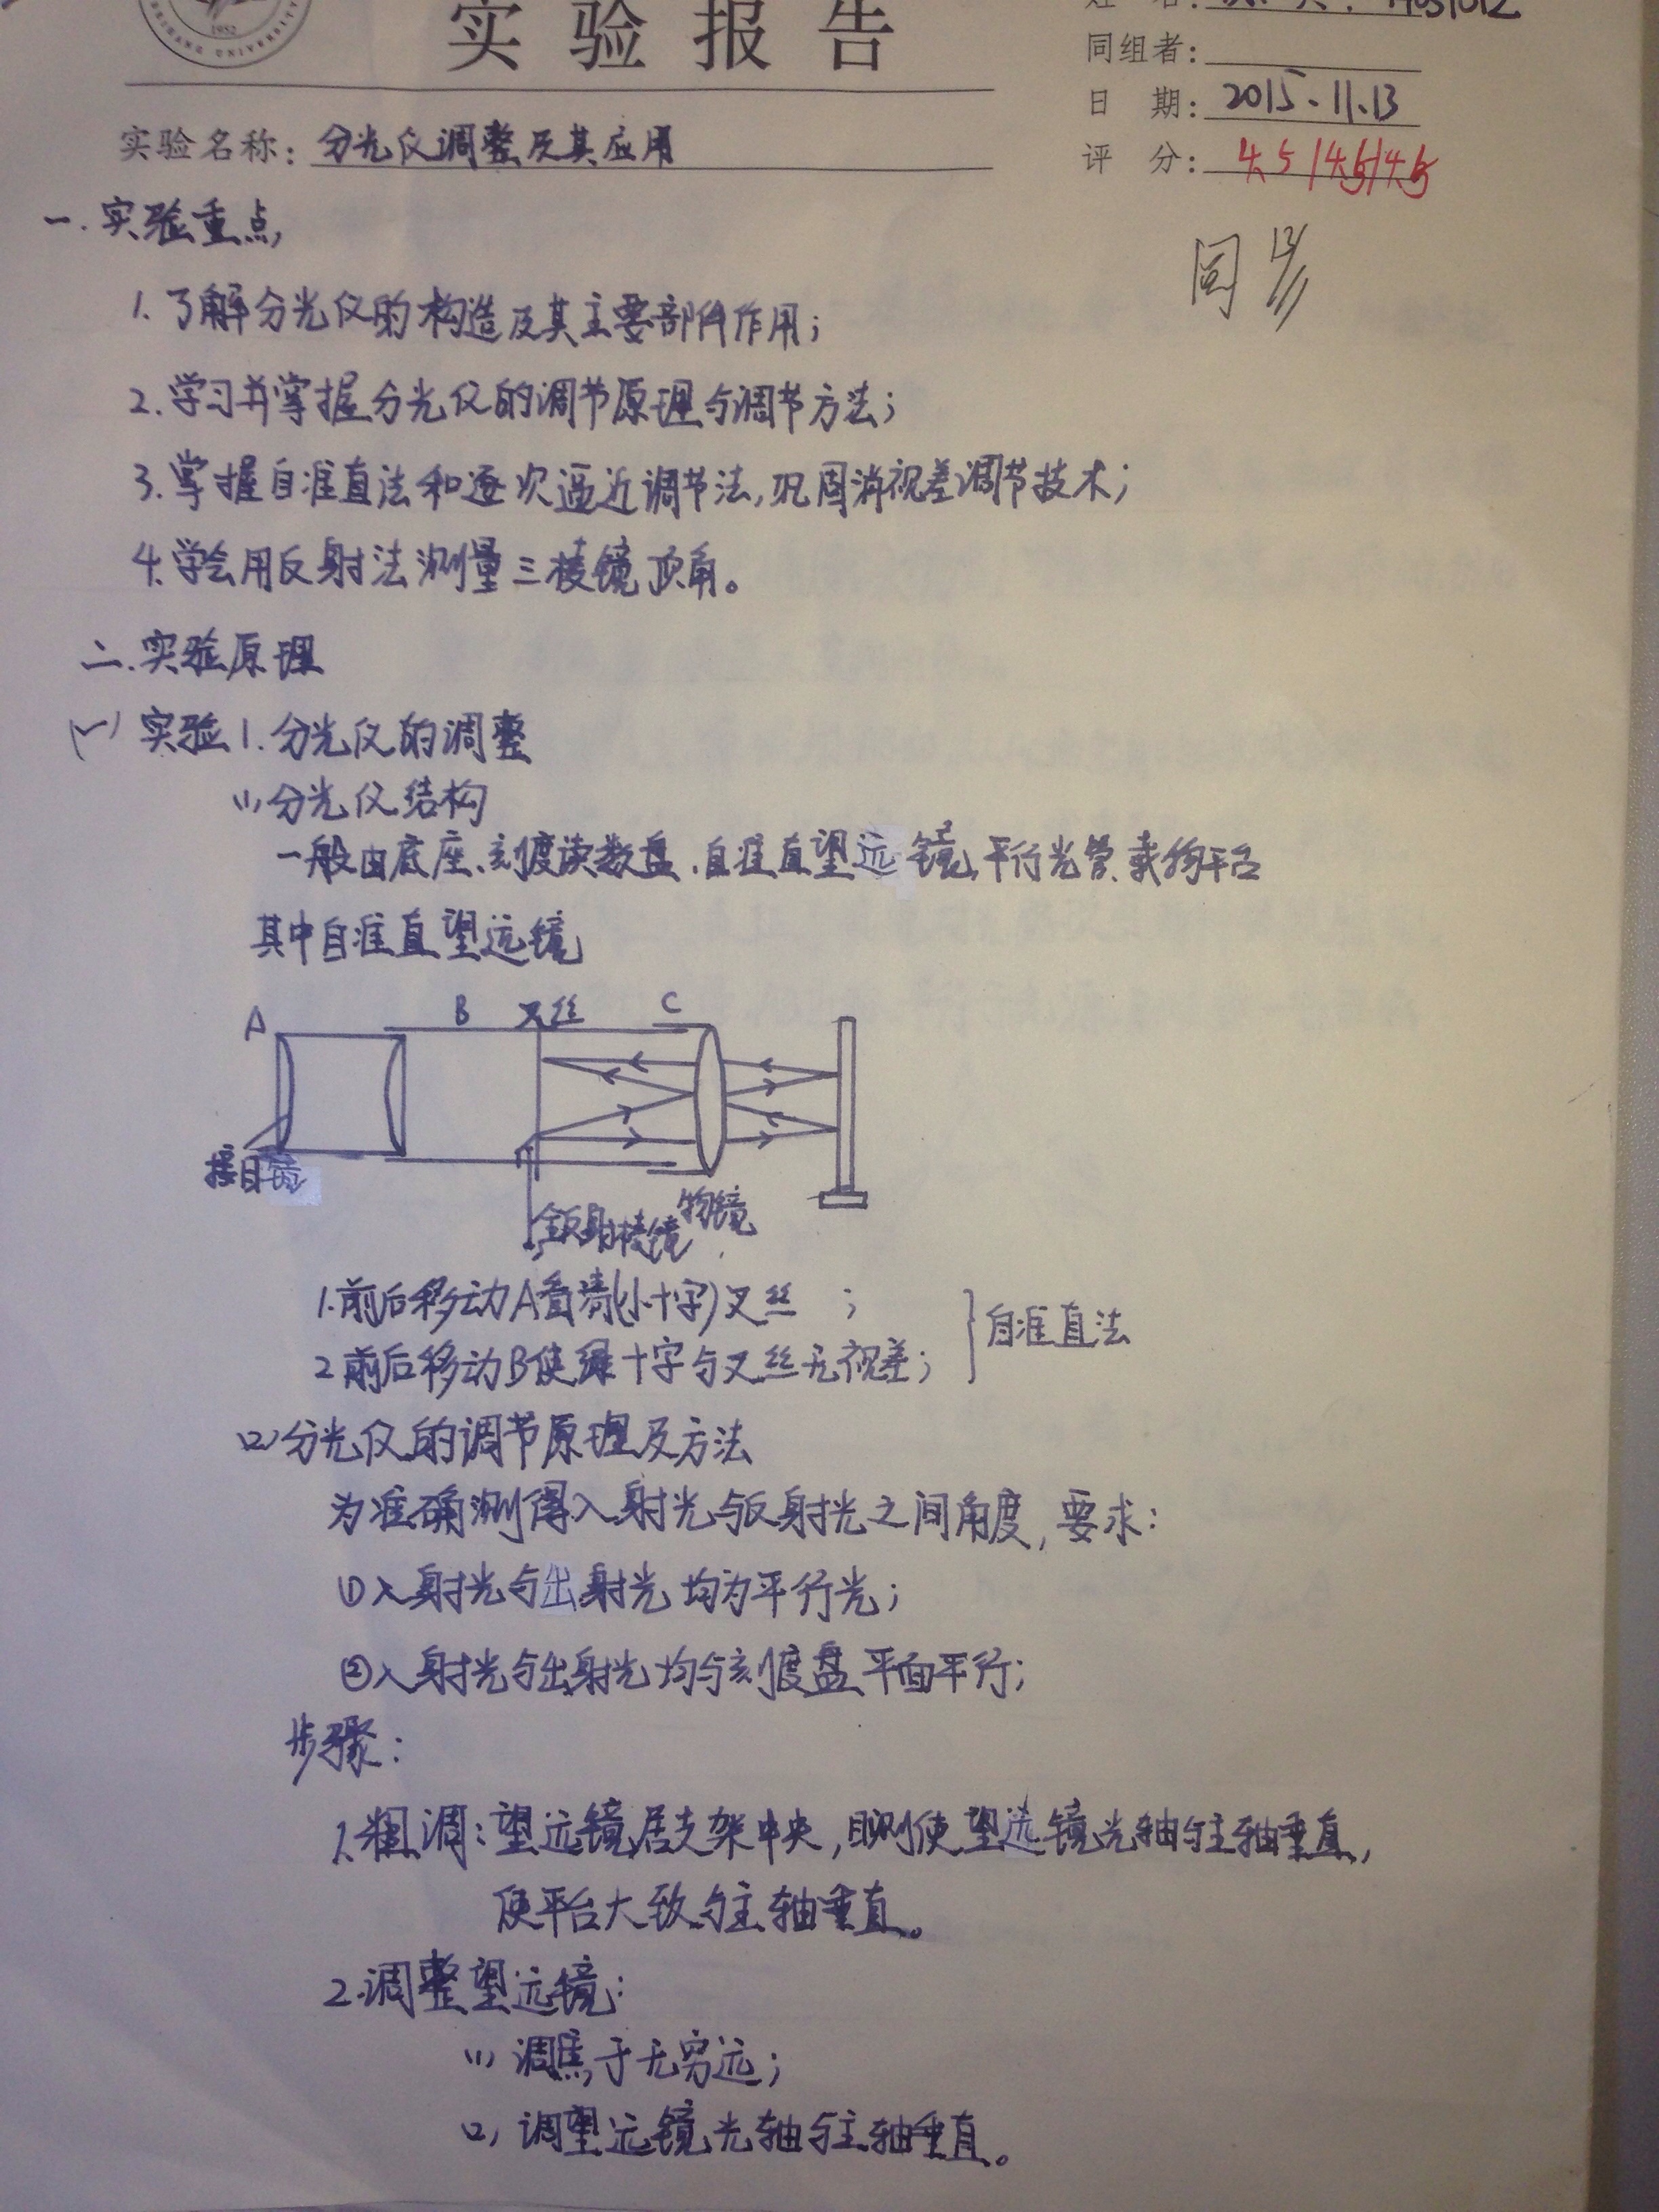 1952
实验报告
同组者:
日 期: 2015.11.13
实验名称: 分光仪调整及其应用
评 分: 4.5/4.5/4.5
一.实验重点
1.了解分光仪的构造及其主要部件作用;
2.学习并掌握分光仪的调节原理与调节方法;
3.掌握自准直法和逐次逼近调节法,巩固消视差调节技术;
4.学会用反射法测量三棱镜顶角。
二.实验原理
(一)实验1.分光仪的调整
(1)分光仪结构
一般由底座、刻度读数盘、自准直望远镜、平行光管、载物平台
其中自准直望远镜
A B 叉丝 C
接目镜
全反射棱镜 物镜
1.前后移动A看清(小十字)叉丝 ;
2.前后移动B使绿十字与叉丝无视差;
自准直法
(2)分光仪的调节原理及方法
为准确测得入射光与反射光之间角度,要求:
①入射光与出射光均为平行光;
②入射光与出射光均与刻度盘平面平行;
步骤:
1.粗调:望远镜居支架中央,目测使望远镜光轴与主轴垂直,
使平台大致与主轴垂直。
2.调整望远镜:
(1)调焦于无穷远;
(2)调望远镜光轴与主轴垂直。